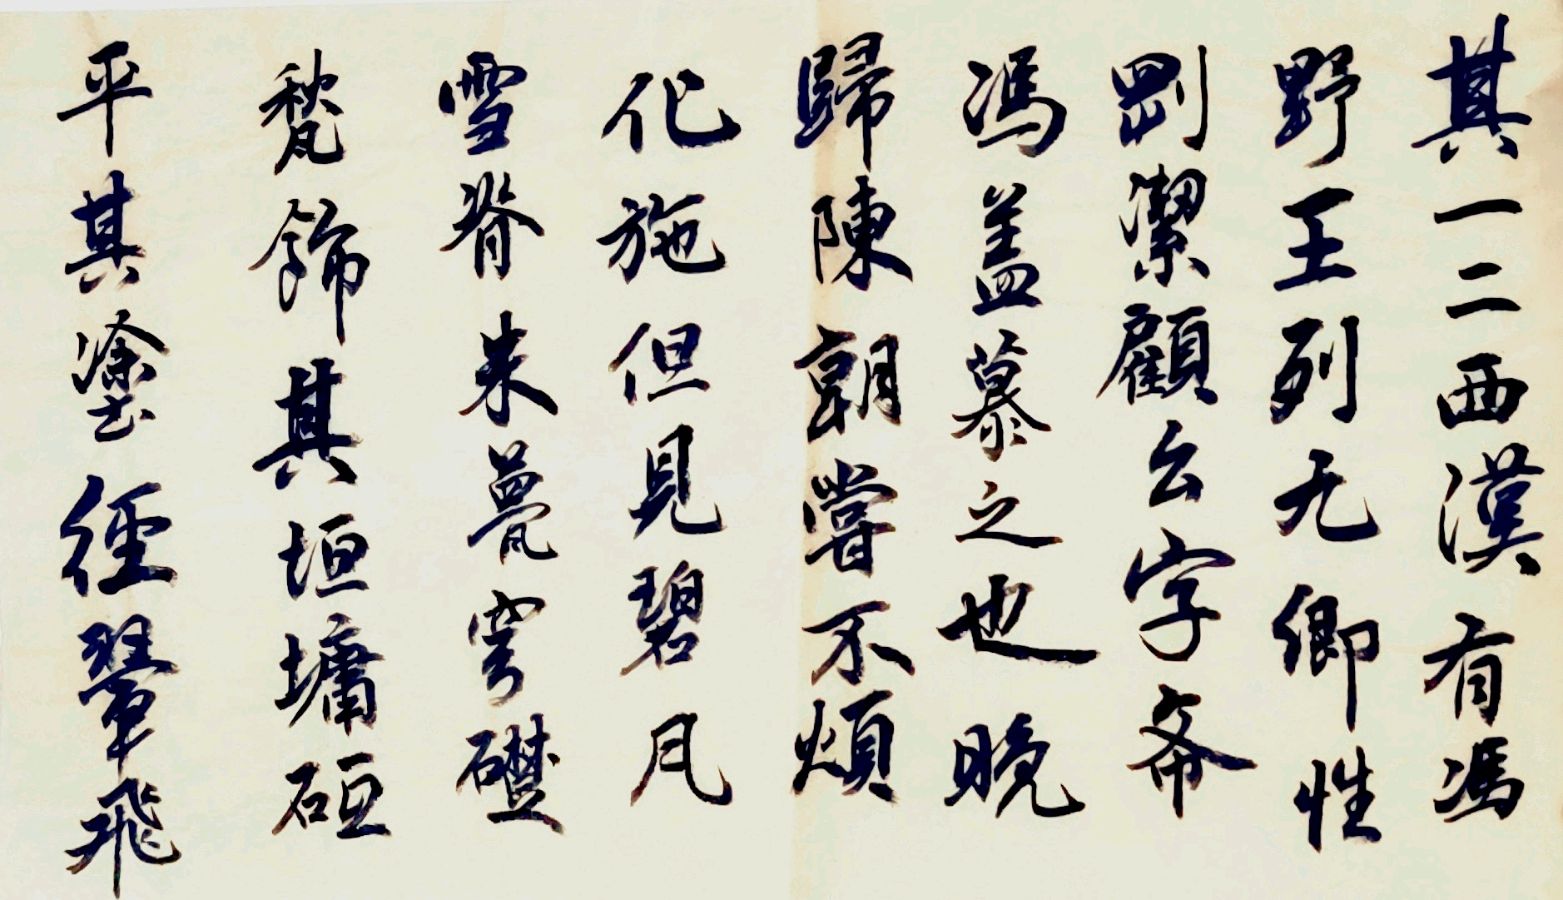 其一二西漢有馮
野王列九卿性
剛潔顧公字斋
馮盖慕之也晚
歸陳朝嘗不煩
化施但見碧瓦
雪脊朱甍穹礎
甃飾其垣墉硕
平其塗徑翬飛